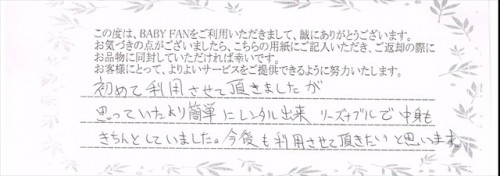 この度は、BABY FANをご利用いただきまして、誠にありがとうございます。
お気づきの点がございましたら、こちらの用紙にご記入いただき、ご返却の際に
お品物に同封していただければ幸いです。
お客様にとって、よりよいサービスをご提供できるように努力いたします。
初めて利用させて頂きましたが
思っていたより簡単にレンタル出来、リーズナブルで中身も
きちんとしていました。今後も利用させて頂きたいと思います。